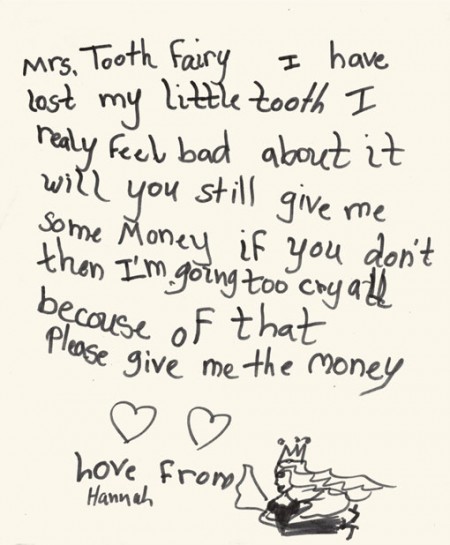 Mrs. Tooth Fairy I have
lost my little tooth I
realy Feel bad about it
will you still give me
some Money if you don't
then I'm going too cry all
becouse of that
Please give me the money
Love From
Hannah